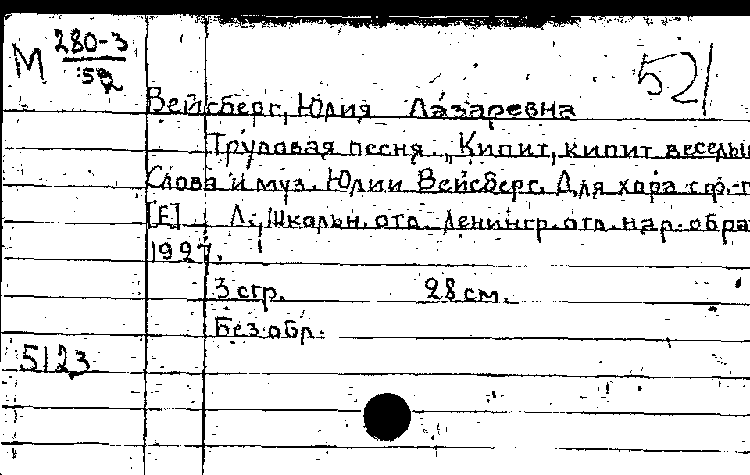 М 280-3
52
521
Вейсберг, Юлия Лазаревна
Трудовая песня. „Кипит, кипит веселый
Слова и муз. Юлии Вейсберг. Для хора с ф.-п
[Е] Л., Школьн. отд. Ленингр. отд. нар. обра
1927.
3 стр. 28 см.
Без обл.
5123